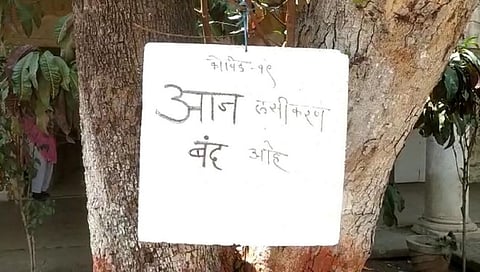 कोविड-१९
आज लसीकरण
बंद आहे